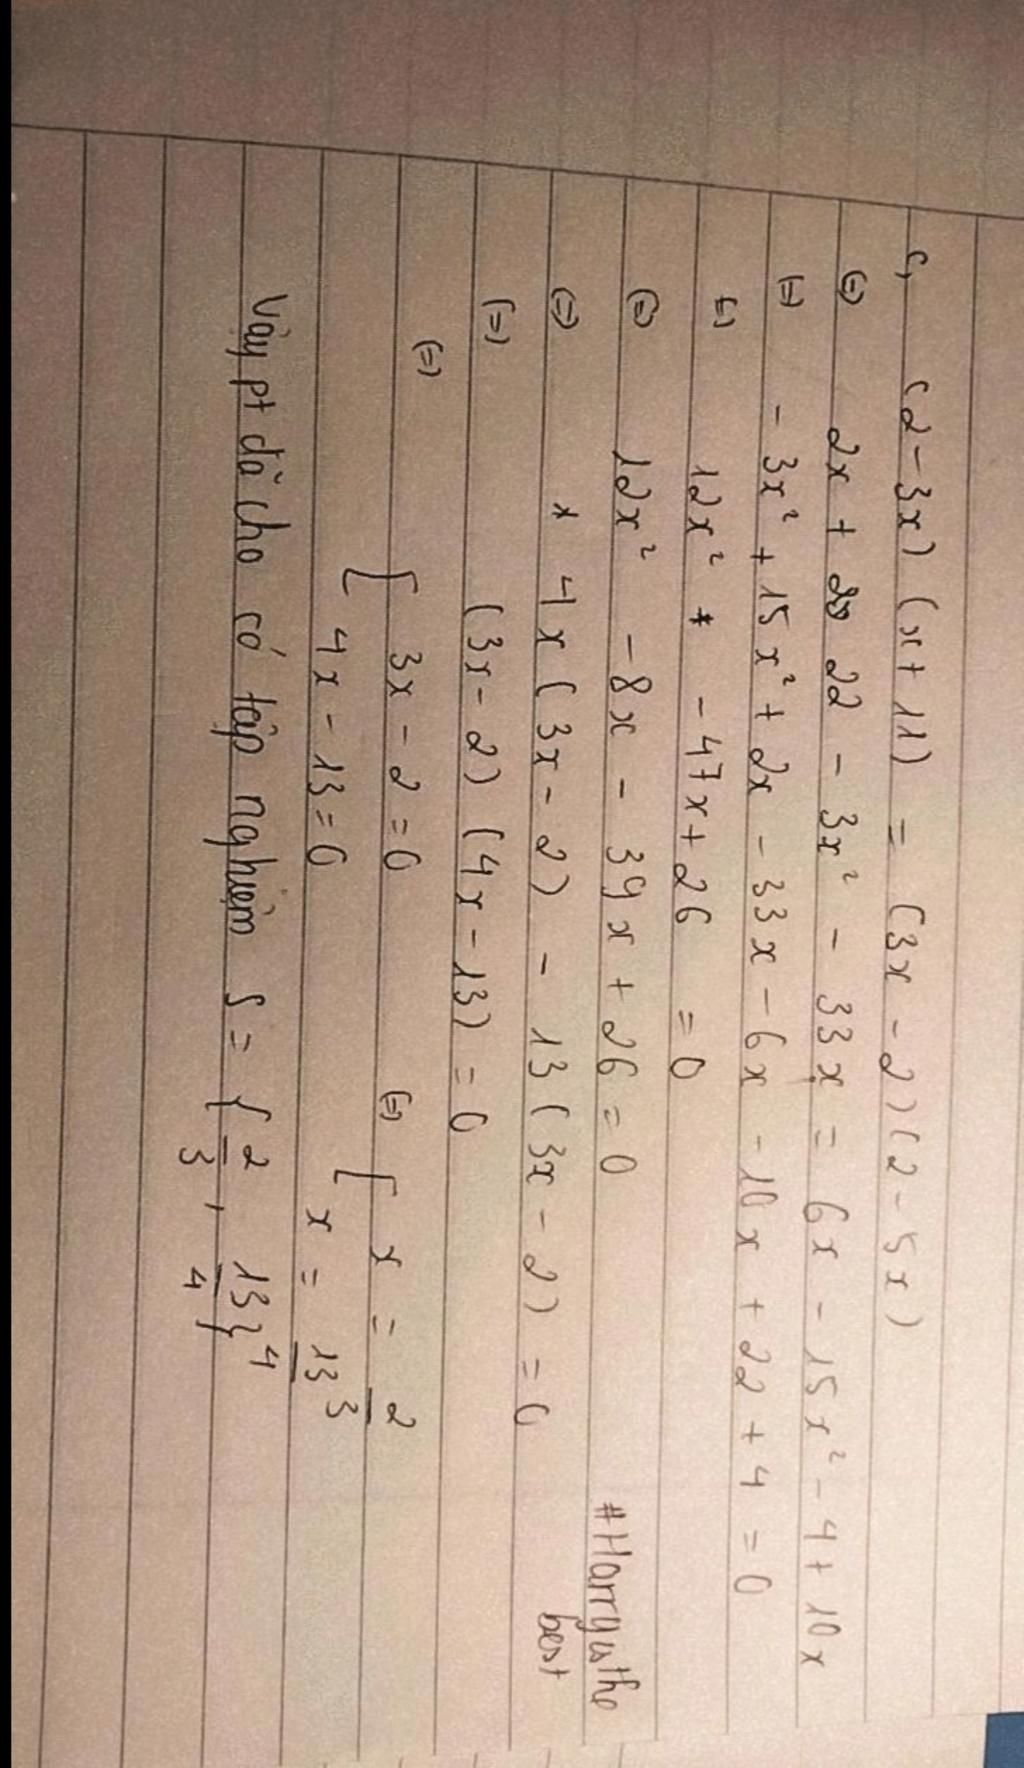 c, (2-3x)(x+11) = (3x-2)(2-5x)
(=) 2x + 22 - 3x² - 33x = 6x - 15x² - 4 + 10x
(=) -3x² + 15x² + 2x - 33x - 6x - 10x + 22 + 4 = 0
(=) 12x² - 47x + 26 = 0
(=) 12x² - 8x - 39x + 26 = 0
(=) 4x(3x-2) - 13(3x-2) = 0
(=) (3x-2)(4x-13) = 0
(=) [ 3x - 2 = 0 (=) [ x = 2/3
4x - 13 = 0 x = 13/4
Vậy pt đã cho có tập nghiệm S = { 2/3 , 13/4 }
#Harryisthe
best